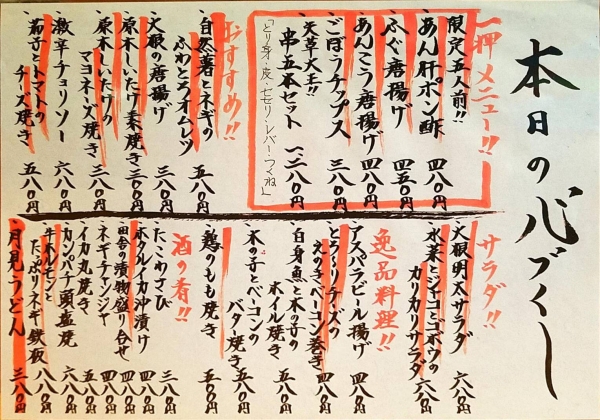 本日の心づくし
一押メニュー!!
限定五人前!!
あん肝ポン酢 四八〇円
ふぐ唐揚げ 四五〇円
あんこう唐揚げ 四八〇円
ごぼうチップス 三八〇円
天草大王!!
串五本セット 一二八〇円
「とり身・皮・セセリ・レバー・つくね」
おすすめ!!
自然薯とネギの
ふわとろオムレツ 五八〇円
大根の唐揚げ 三八〇円
原木しいたけ素焼き 三〇〇円
原木しいたけの
マヨネーズ焼き 三八〇円
激辛チョリソー 六八〇円
茄子とトマトの
チーズ焼き 五八〇円
サラダ!!
大根明太サラダ 六八〇円
水菜とジャコとゴボウの
カリカリサラダ 六八〇円
逸品料理!!
アスパラビール揚げ 四八〇円
とろ〜りチーズの
えのきベーコン巻き 四八〇円
白身魚と木の子の
ホイル焼き 五八〇円
木の子とベーコンの
バター焼き 五八〇円
鶏のもも焼き 五八〇円
酒の肴!!
たこわさび 三八〇円
ホタルイカ沖漬け 四八〇円
田舎の漬物盛り合せ 四八〇円
ネギチャンジャ 四八〇円
イカ丸焼き 五八〇円
カンパチ頭塩焼 六八〇円
牛ホルモンと
たっぷりネギ鉄板 八八〇円
月見うどん 三八〇円